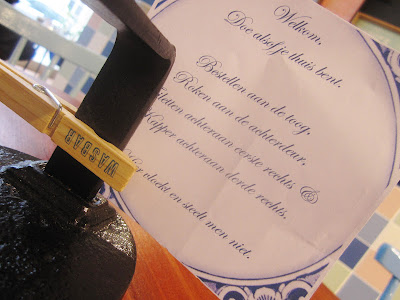 Welkom,
Doe alsof je thuis bent.
Bestellen aan de toog.
Roken aan de achterdeur.
achteraan eerste rechts &
Kapper achteraan derde rechts.
vloekt en steelt men niet.
WASBAR